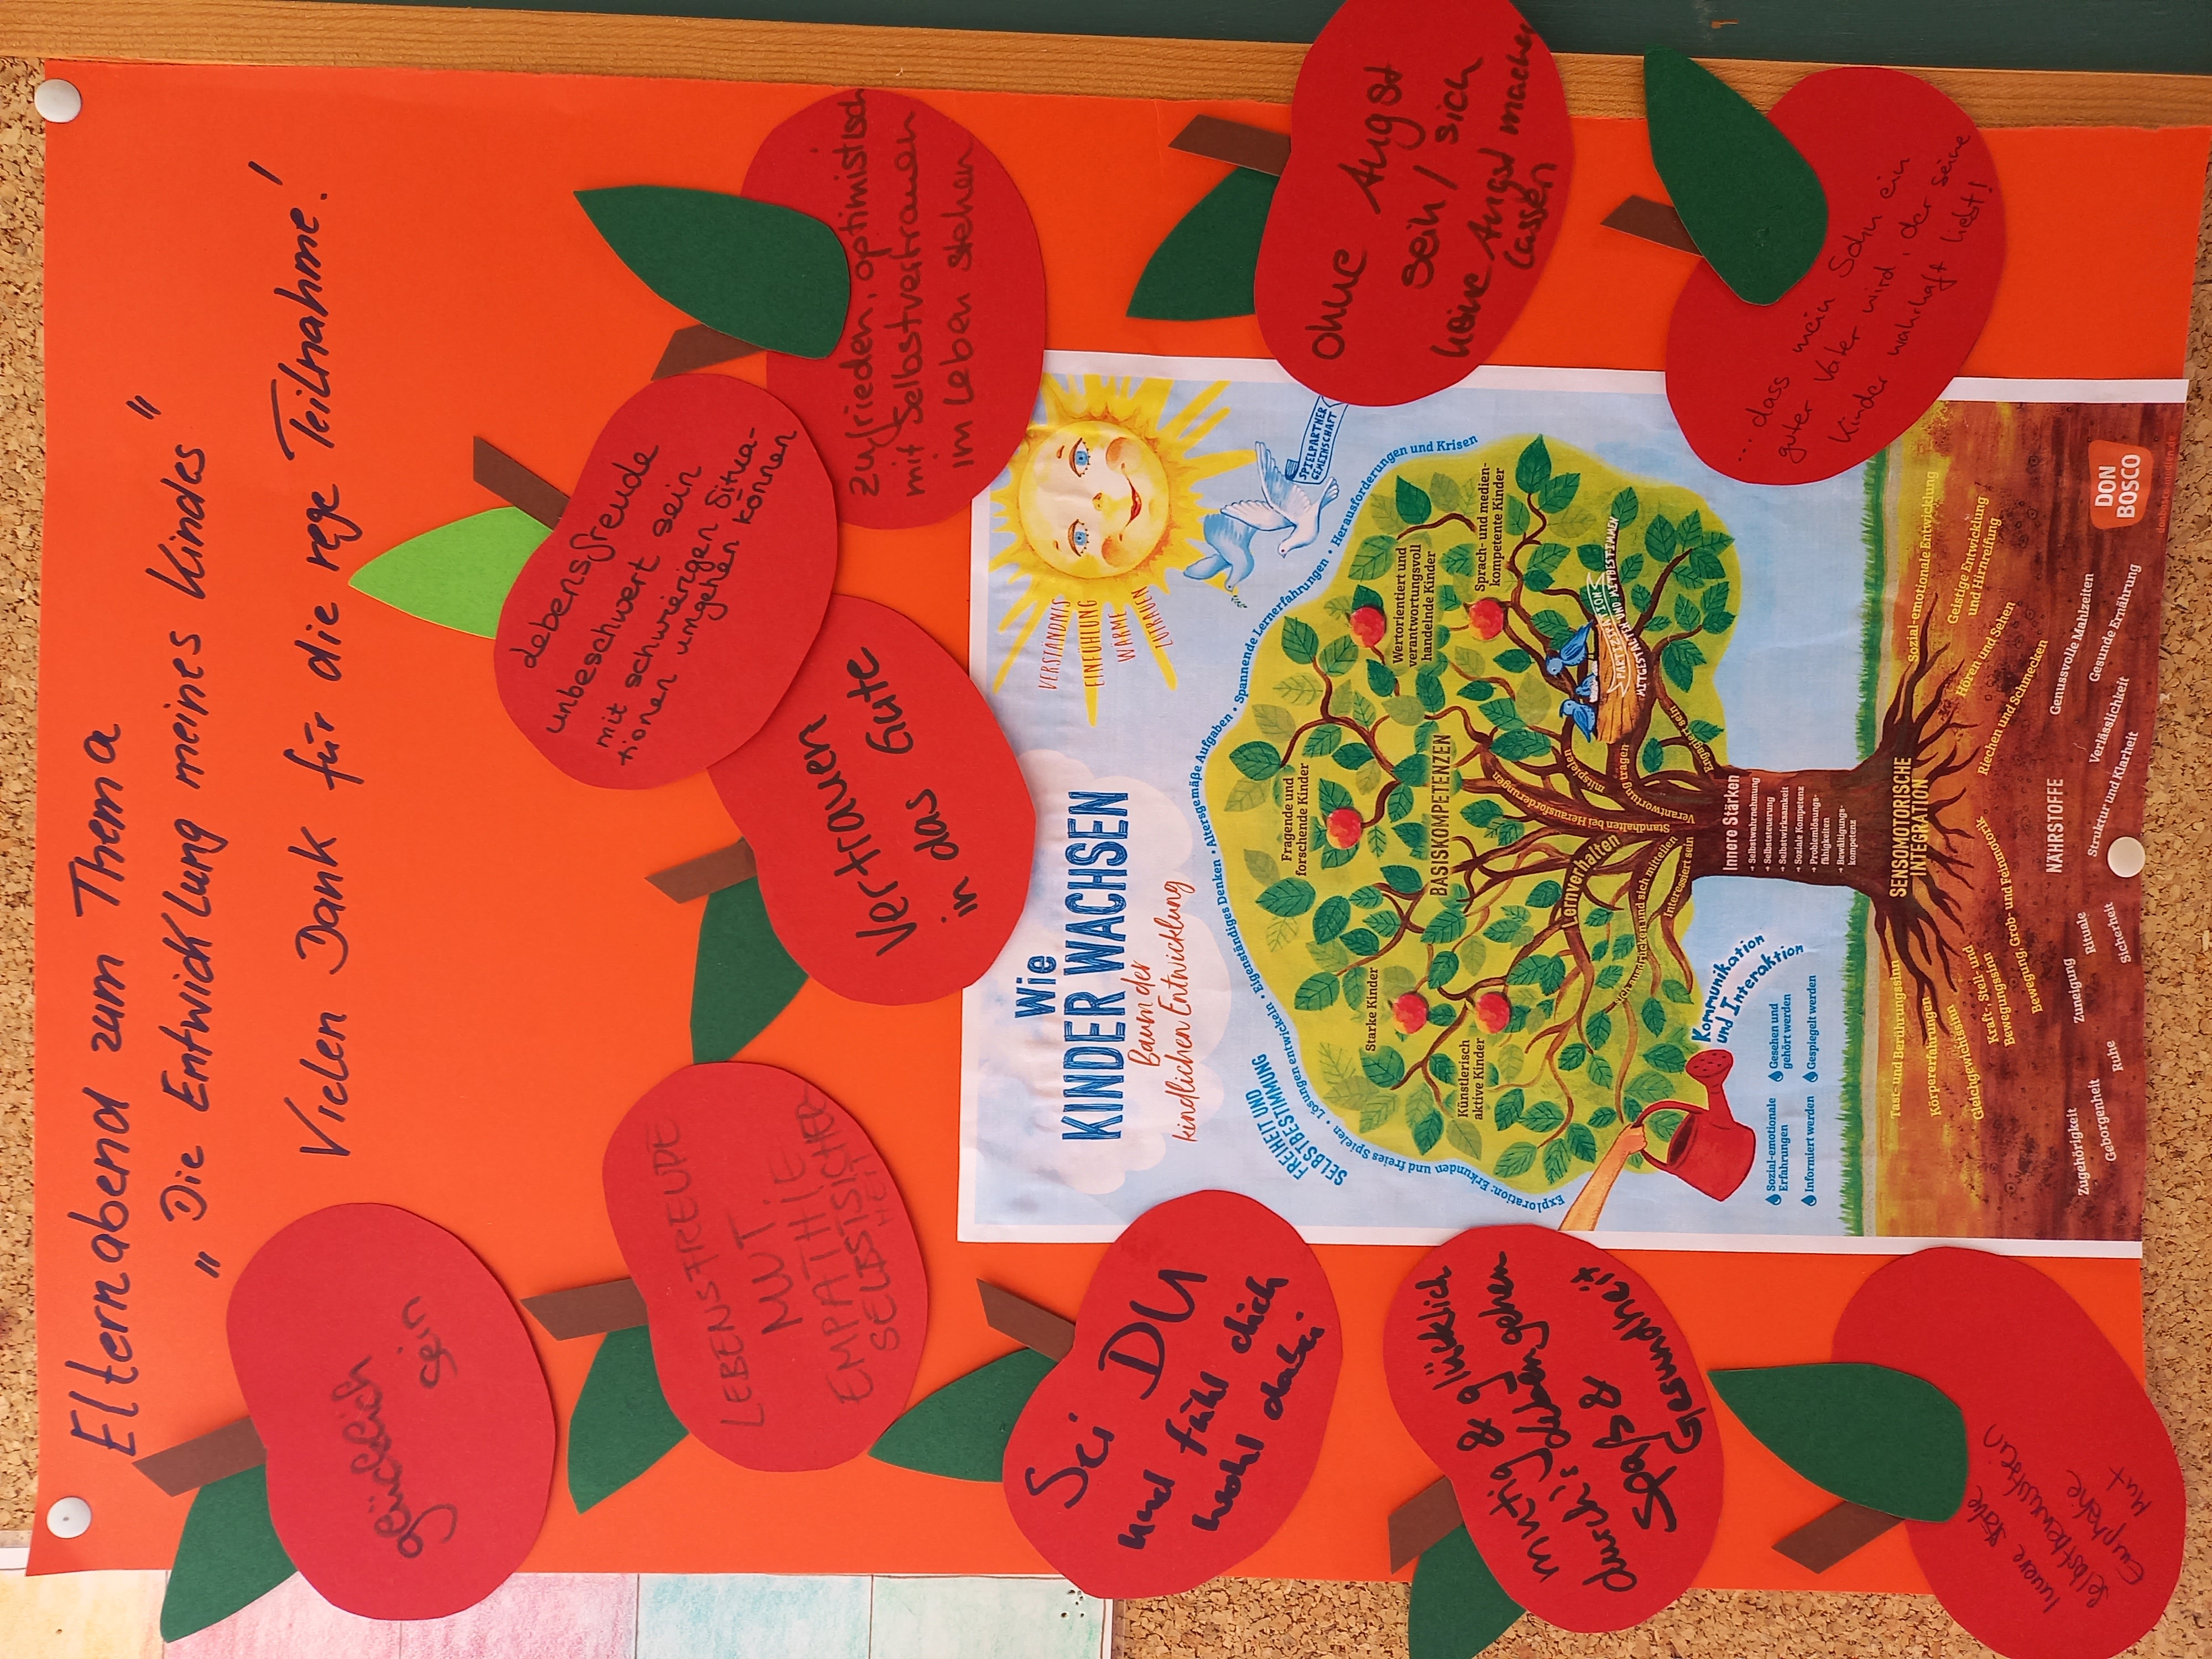 Elternabend zum Thema
„Die Entwicklung meines Kindes"
Vielen Dank für die rege Teilnahme!
glücklich
sein
LEBENSFREUDE
MUT
EMPATHIE
SELBSTSICHER
HEIT
Sei DU
und fühl dich
wohl dabei
mutig & glücklich
durch's Leben gehen
Spaß &
Gesundheit
innere Stärke
Selbstbewusstsein
Empathie
Mut
Vertrauen
in das Gute
Lebensfreude
unbeschwert sein
mit schwierigen Situa-
tionen umgehen können
zufrieden, optimistisch
mit Selbstvertrauen
im Leben stehen
ohne Angst
sein / sich
keine Angst machen
lassen
... dass mein Sohn ein
guter Vater wird, der seine
Kinder wahrhaft liebt!
Wie
KINDER WACHSEN
Baum der
kindlichen Entwicklung
VERSTÄNDNIS
EINFÜHLUNG
WÄRME
ZUTRAUEN
SPIELPARTNER
GEMEINSCHAFT
FREIHEIT UND
SELBSTBESTIMMUNG
Exploration: Erkunden und freies Spielen • Lösungen entwickeln • Eigenständiges Denken • Altersgemäße Aufgaben • Spannende Lernerfahrungen • Herausforderungen und Krisen
Fragende und
forschende Kinder
Wertorientiert und
verantwortungsvoll
handelnde Kinder
Starke Kinder
Sprach- und medien-
kompetente Kinder
Künstlerisch
aktive Kinder
BASISKOMPETENZEN
PARTIZIPATION
MITGESTALTEN UND MITBESTIMMEN
Lernverhalten
Standhalten bei Herausforderungen
Verantwortung tragen
mitspielen
Engagiert sein
Sich ausdrücken und sich mitteilen
Interessiert sein
Kommunikation
und Interaktion
Sozial-emotionale
Erfahrungen
Gesehen und
gehört werden
Informiert werden
Gespiegelt werden
Innere Stärken
→ Selbstwahrnehmung
→ Selbststeuerung
→ Selbstwirksamkeit
→ Soziale Kompetenz
→ Problemlösungs-
fähigkeiten
→ Bewältigungs-
kompetenz
SENSOMOTORISCHE
INTEGRATION
Tast- und Berührungssinn
Körpererfahrungen
Gleichgewichtssinn
Kraft-, Stell- und
Bewegungssinn
Bewegung, Grob- und Feinmotorik
Sozial-emotionale Entwicklung
Geistige Entwicklung
und Hirnreifung
Hören und Sehen
Riechen und Schmecken
NÄHRSTOFFE
Zugehörigkeit
Geborgenheit
Ruhe
Zuneigung
Rituale
Sicherheit
Struktur und Klarheit
Verlässlichkeit
Genussvolle Mahlzeiten
Gesunde Ernährung
DON
BOSCO